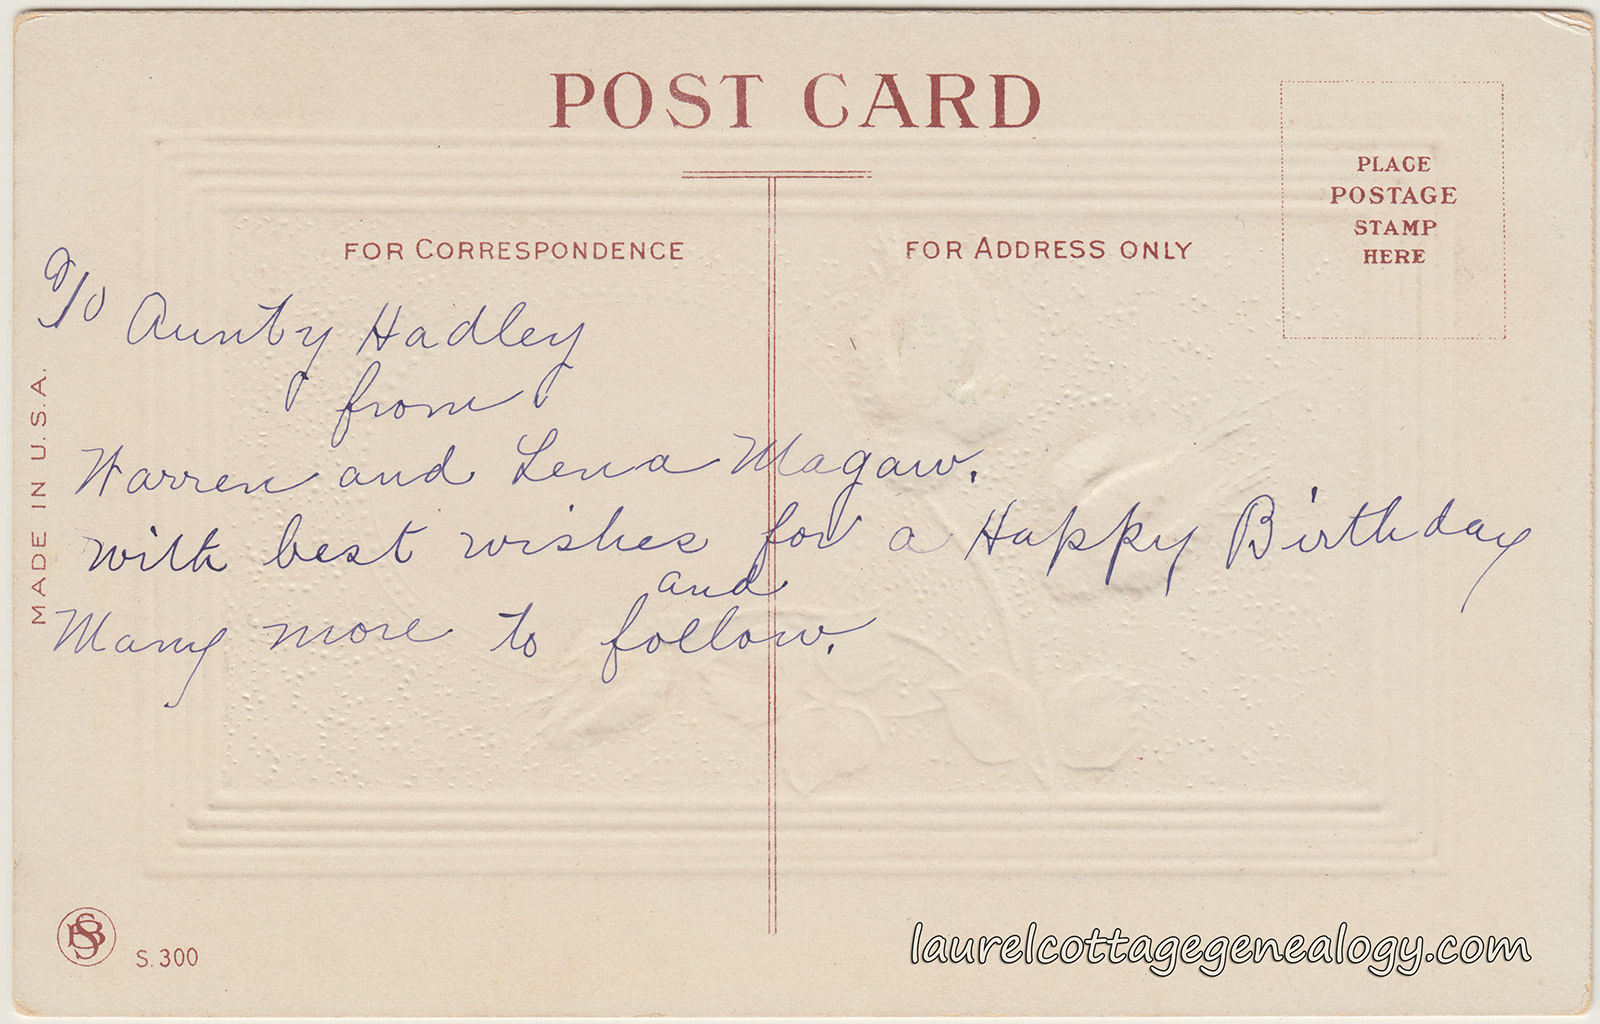 POST CARD
PLACE
POSTAGE
STAMP
HERE
FOR CORRESPONDENCE
FOR ADDRESS ONLY
Aunty Hadley
from
Warren and Lena Magaw.
with best wishes for a Happy Birthday
and
Many more to follow.
MADE IN U.S.A.
S. 300
laurelcottagegenealogy.com